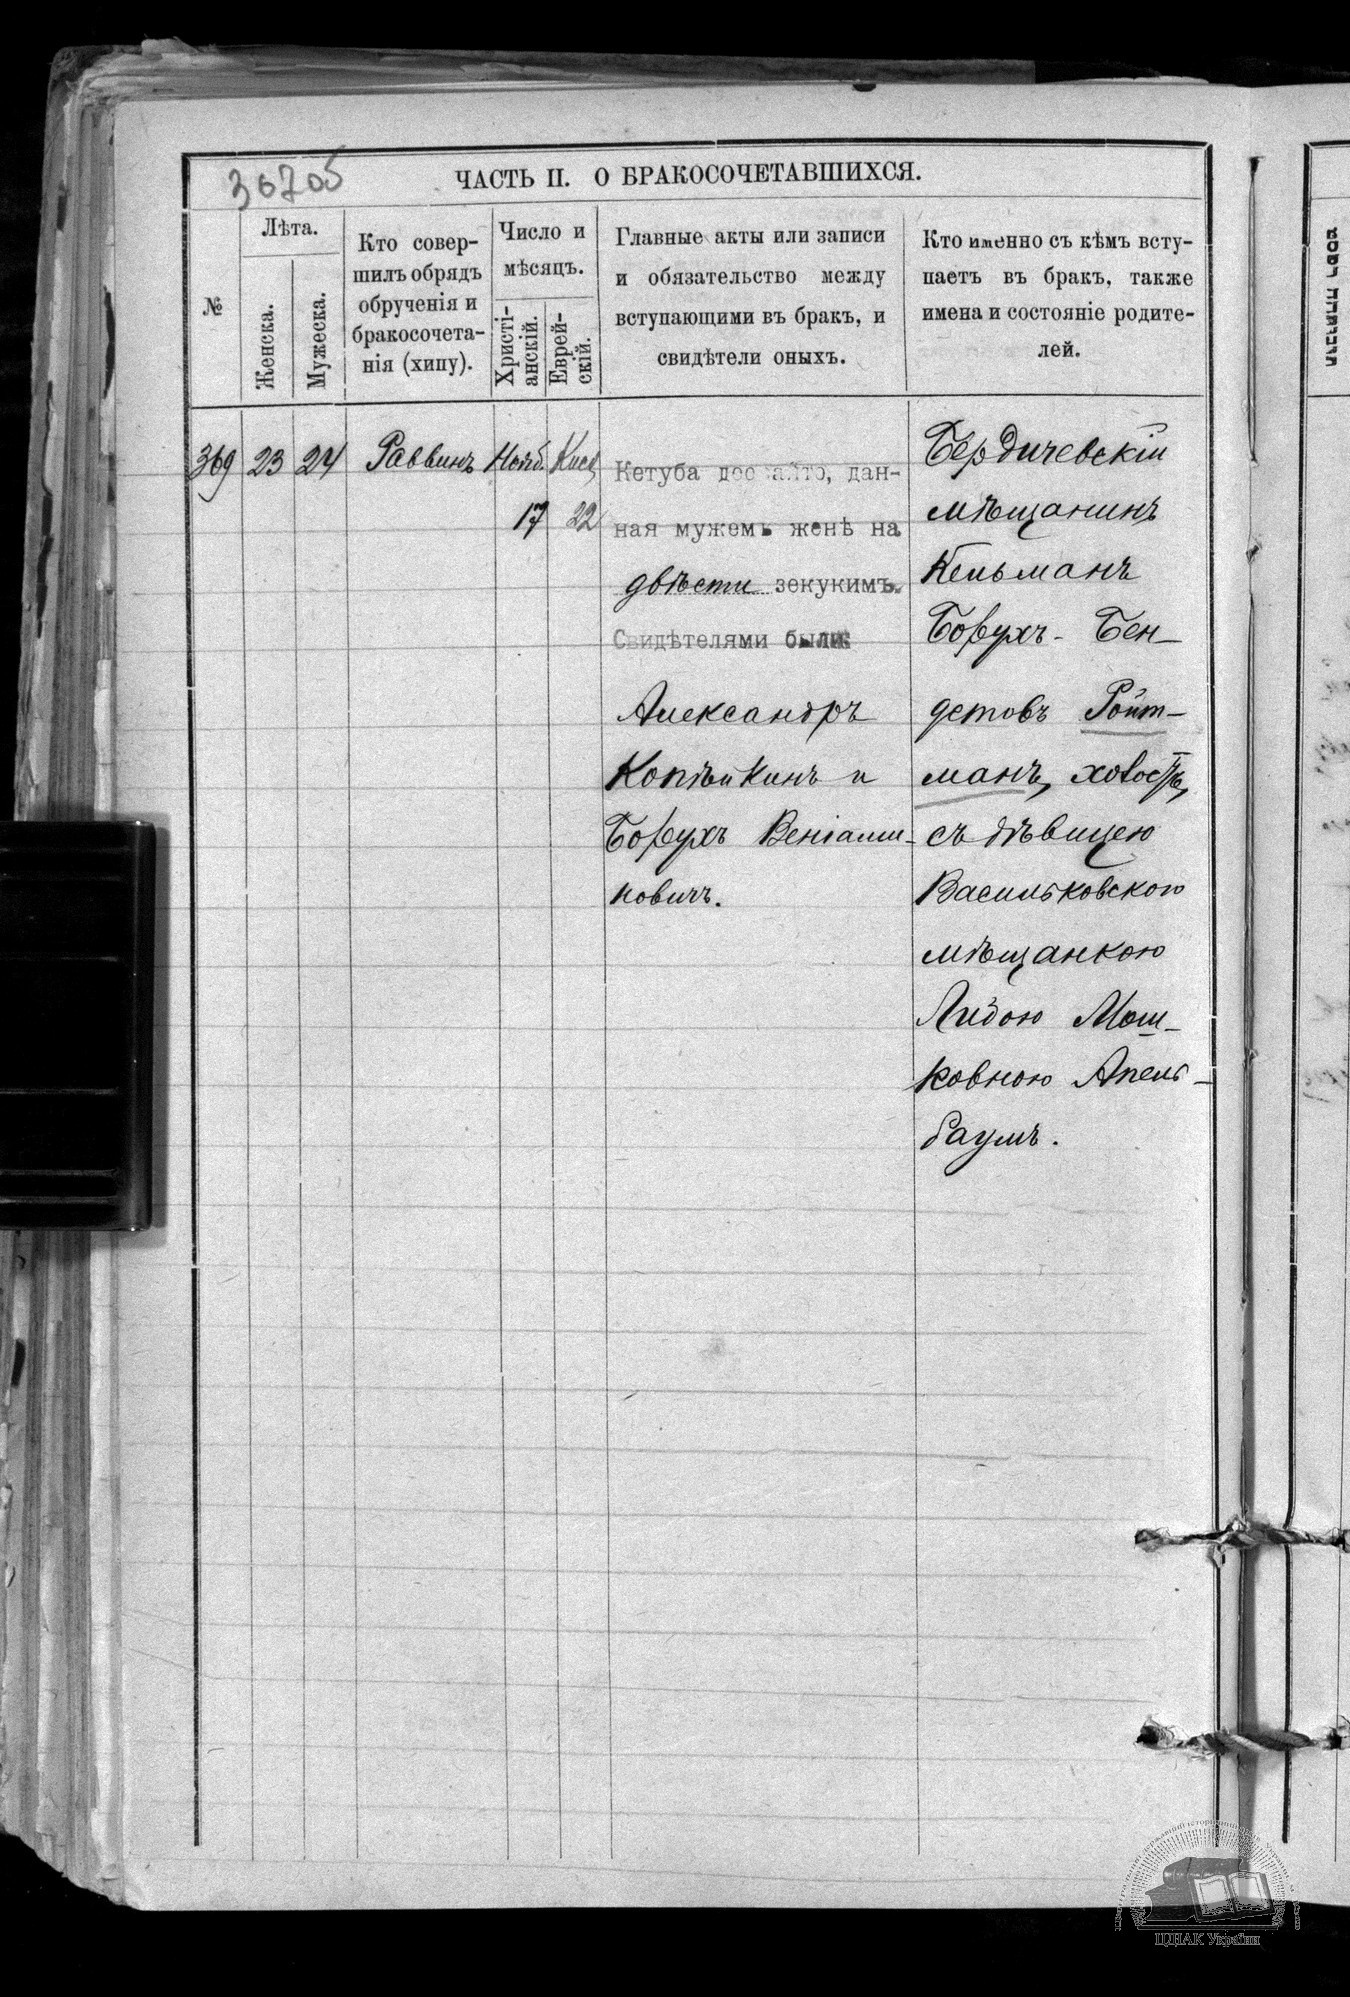 30705
ЧАСТЬ II. О БРАКОСОЧЕТАВШИХСЯ.
№
Лѣта.
Женска.
Мужеска.
Кто совер-
шилъ обрядъ
обрученія и
бракосочета-
нія (хипу).
Число и
мѣсяцъ.
Христі-
анскій.
Еврей-
скій.
Главные акты или записи
и обязательство между
вступающими въ бракъ, и
свидѣтели оныхъ.
Кто именно съ кѣмъ всту-
паетъ въ бракъ, также
имена и состояніе родите-
лей.
369 23 24 Раввинъ Нояб. Кисл
17 22
Кетуба дан-
ная мужемъ женѣ на
двѣсти зекукимъ.
Свидѣтелями были:
Александръ
Копѣйкинъ и
Борухъ Веніами-
новичъ.
Бердичевскій
мѣщанинъ
Кельманъ
Борухъ-Бен-
детовъ Ройт-
манъ, холостъ,
съ дѣвицею
Васильковскою
мѣщанкою
Лидою Мош-
ковною Апель-
баумъ.
ЦДІАК України